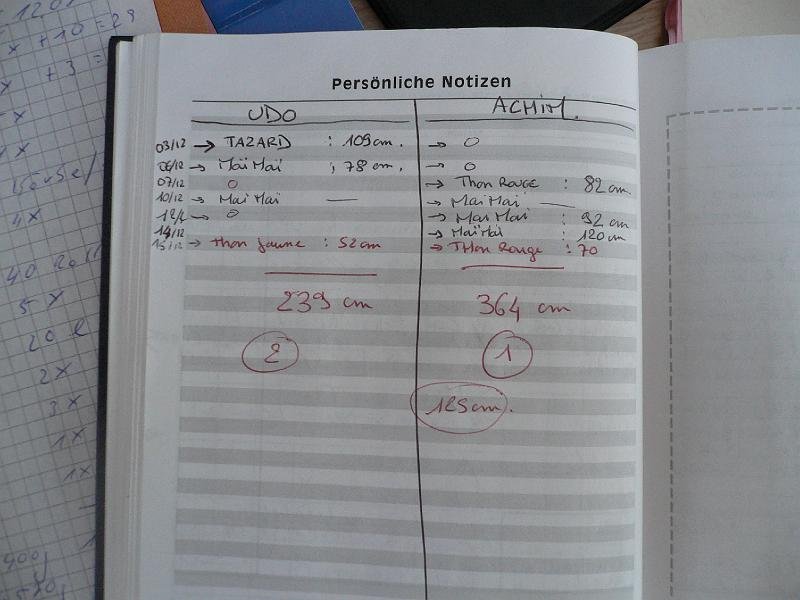 Persönliche Notizen
UDO ACHIM.
03/12 → TAZARD : 109 cm. → 0
06/12 → Maï Maï : 78 cm. → 0
07/12 0 → Thon Rouge : 82 cm
10/12 → Mai Mai — → Mai Mai —
12/12 → 0 → Mai Mai : 92 cm
14/12 → Mai Mai : 120 cm
15/12 → thon jaune : 52 cm → Thon Rouge : 70
239 cm 364 cm
2 1
125 cm.
120
x +10 = 29
x +3 =
4x
40
5 x
20 l
2x
3x
1x
1x
400g